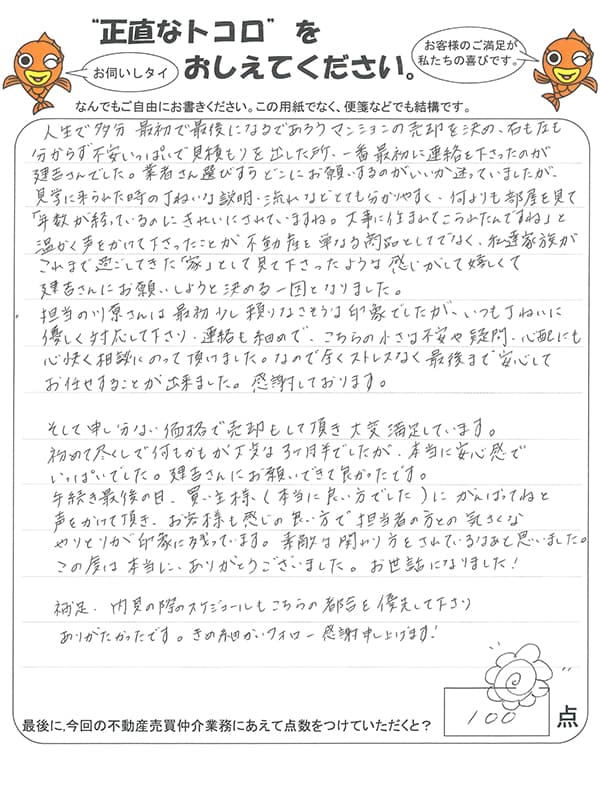 "正直なトコロ" を
おしえてください。
お伺いしタイ
お客様のご満足が
私たちの喜びです。
なんでもご自由にお書きください。この用紙でなく、便箋などでも結構です。
人生で多分 最初で最後になるであろうマンションの売却を決め、右も左も
分からず不安いっぱいで見積もりを出した所、一番最初に連絡を下さったのが
建吉さんでした。業者さん選びすらどこにお願いするのがいいか迷っていましたが、
見学に来られた時の丁ねいな説明・流れなどとても分かりやすく、何よりも部屋を見て
「年数が経っているのにきれいにされていますね。大事に住まれてこられたんですね」と
温かく声をかけて下さったことが不動産を単なる商品としてでなく、私達家族が
これまで過ごしてきた「家」として見て下さったような感じがして嬉しくて
建吉さんにお願いしようと決める一因となりました。
担当の川原さんは最初少し頼りなさそうな印象でしたが、いつも丁ねいに
優しく対応して下さり・連絡も細めで、こちらの小さな不安や疑問・心配にも
心快く相談にのって頂けました。なので全くストレスなく最後まで安心して
お任せすることが出来ました。感謝しております。
そして申し分ない価格で売却もして頂き大変満足しています。
初めて尽くしで何もかもが大変な3ヶ月半でしたが、本当に安心感で
いっぱいでした。建吉さんにお願いできて良かったです。
手続き最後の日、買い主様、(本当に良い方でした)にがんばってねと
声をかけて頂き、お客様も感じの良い方で担当者の方との気さくな
やりとりが印象に残っています。素敵な関わり方をされているなあと思いました。
この度は本当に、ありがとうございました。お世話になりました!
補足、内見の際のスケジュールもこちらの都合を優先して下さり
ありがたかったです。きめ細かいフォロー感謝申し上げます!
最後に、今回の不動産売買仲介業務にあえて点数をつけていただくと?
100
点